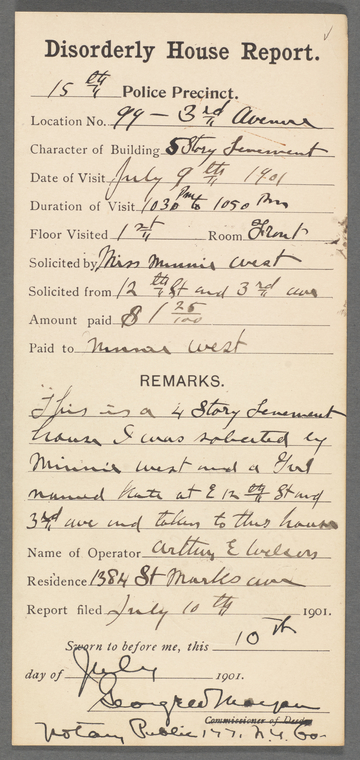 Disorderly House Report.
15 th Police Precinct.
Location No. 99 - 3rd Avenue
Character of Building 5 Story Tenement
Date of Visit July 9th 1901
Duration of Visit 1030 Pm to 1050 Pm
Floor Visited 1st Room Front
Solicited by Miss Minnie West
Solicited from 12th St and 3rd ave
Amount paid $ 1 25/100
Paid to Minnie West
REMARKS.
This is a 4 Story Tenement
house I was solicited by
Minnie West and a Girl
named Kate at E 12th St and
3rd ave and taken to this house
Name of Operator Arthur E Wilson
Residence 1384 St Marks ave
Report filed July 10th 1901.
Sworn to before me, this 10th
day of July 1901.
Commissioner of Deeds
Notary Public 177. N.Y. Co.